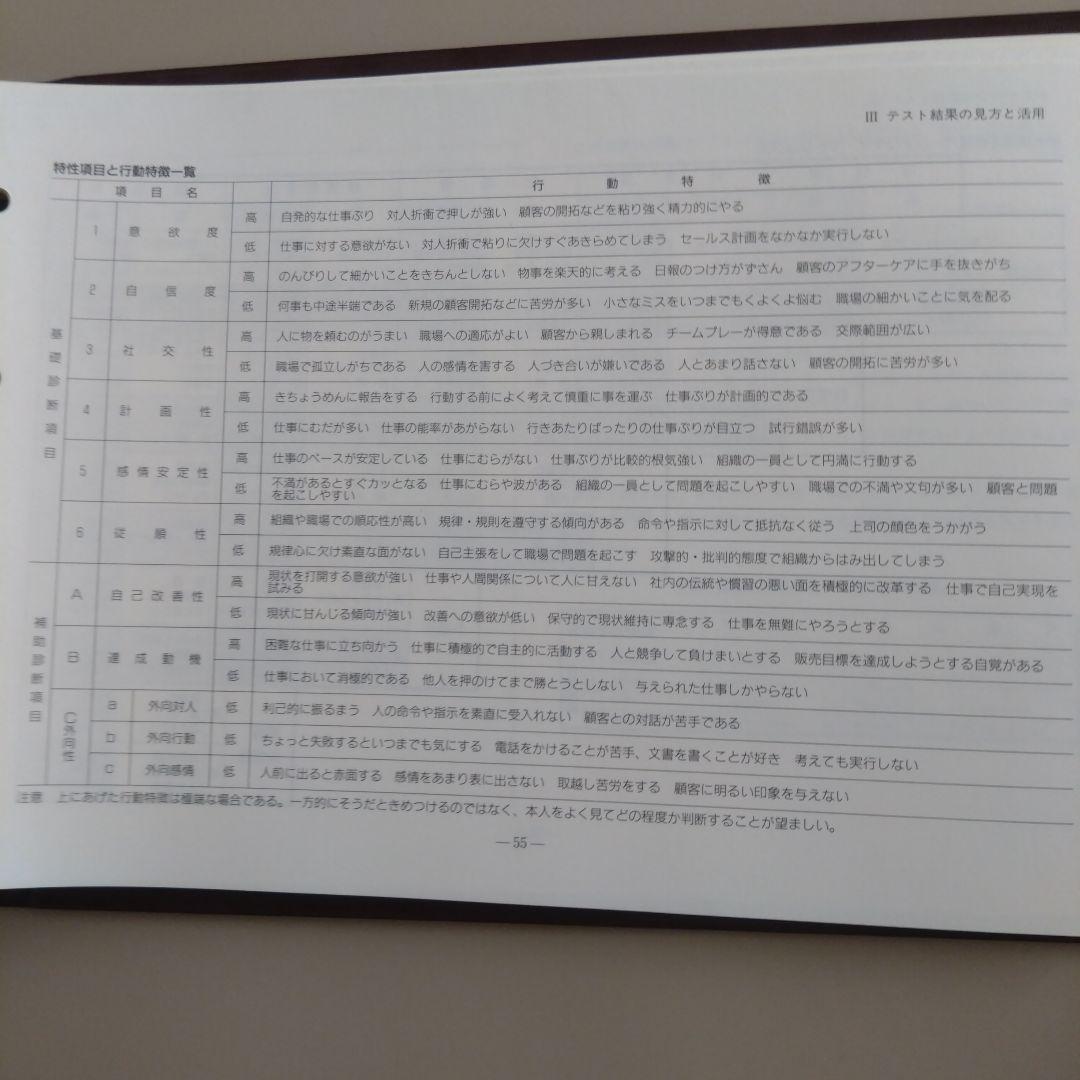 III テスト結果の見方と活用
特性項目と行動特徴一覧
項目名 行動特徴
基礎診断項目
1 意欲度 高 自発的な仕事ぶり 対人折衝で押しが強い 顧客の開拓などを粘り強く精力的にやる
低 仕事に対する意欲がない 対人折衝で粘りに欠けすぐあきらめてしまう セールス計画をなかなか実行しない
2 自信度 高 のんびりして細かいことをきちんとしない 物事を楽天的に考える 日報のつけ方がずさん 顧客のアフターケアに手を抜きがち
低 何事も中途半端である 新規の顧客開拓などに苦労が多い 小さなミスをいつまでもくよくよ悩む 職場の細かいことに気を配る
3 社交性 高 人に物を頼むのがうまい 職場への適応がよい 顧客から親しまれる チームプレーが得意である 交際範囲が広い
低 職場で孤立しがちである 人の感情を害する 人づき合いが嫌いである 人とあまり話さない 顧客の開拓に苦労が多い
4 計画性 高 きちょうめんに報告をする 行動する前によく考えて慎重に事を運ぶ 仕事ぶりが計画的である
低 仕事にむだが多い 仕事の能率があがらない 行きあたりばったりの仕事ぶりが目立つ 試行錯誤が多い
5 感情安定性 高 仕事のペースが安定している 仕事にむらがない 仕事ぶりが比較的根気強い 組織の一員として円満に行動する
低 不満があるとすぐカッとなる 仕事にむらや波がある 組織の一員として問題を起こしやすい 職場での不満や文句が多い 顧客と問題
を起こしやすい
6 従順性 高 組織や職場での順応性が高い 規律・規則を遵守する傾向がある 命令や指示に対して抵抗なく従う 上司の顔色をうかがう
低 規律心に欠け素直な面がない 自己主張をして職場で問題を起こす 攻撃的・批判的態度で組織からはみ出してしまう
補助診断項目
A 自己改善性 高 現状を打開する意欲が強い 仕事や人間関係について人に甘えない 社内の伝統や慣習の悪い面を積極的に改革する 仕事で自己実現を
試みる
低 現状に甘んじる傾向が強い 改善への意欲が低い 保守的で現状維持に専念する 仕事を無難にやろうとする
B 達成動機 高 困難な仕事に立ち向かう 仕事に積極的で自主的に活動する 人と競争して負けまいとする 販売目標を達成しようとする自覚がある
低 仕事において消極的である 他人を押のけてまで勝とうとしない 与えられた仕事しかやらない
C外向性
a 外向対人 低 利己的に振るまう 人の命令や指示を素直に受入れない 顧客との対話が苦手である
b 外向行動 低 ちょっと失敗するといつまでも気にする 電話をかけることが苦手、文書を書くことが好き 考えても実行しない
c 外向感情 低 人前に出ると赤面する 感情をあまり表に出さない 取越し苦労をする 顧客に明るい印象を与えない
注意 上にあげた行動特徴は極端な場合である。一方的にそうだときめつけるのではなく、本人をよく見てどの程度か判断することが望ましい。
—55—